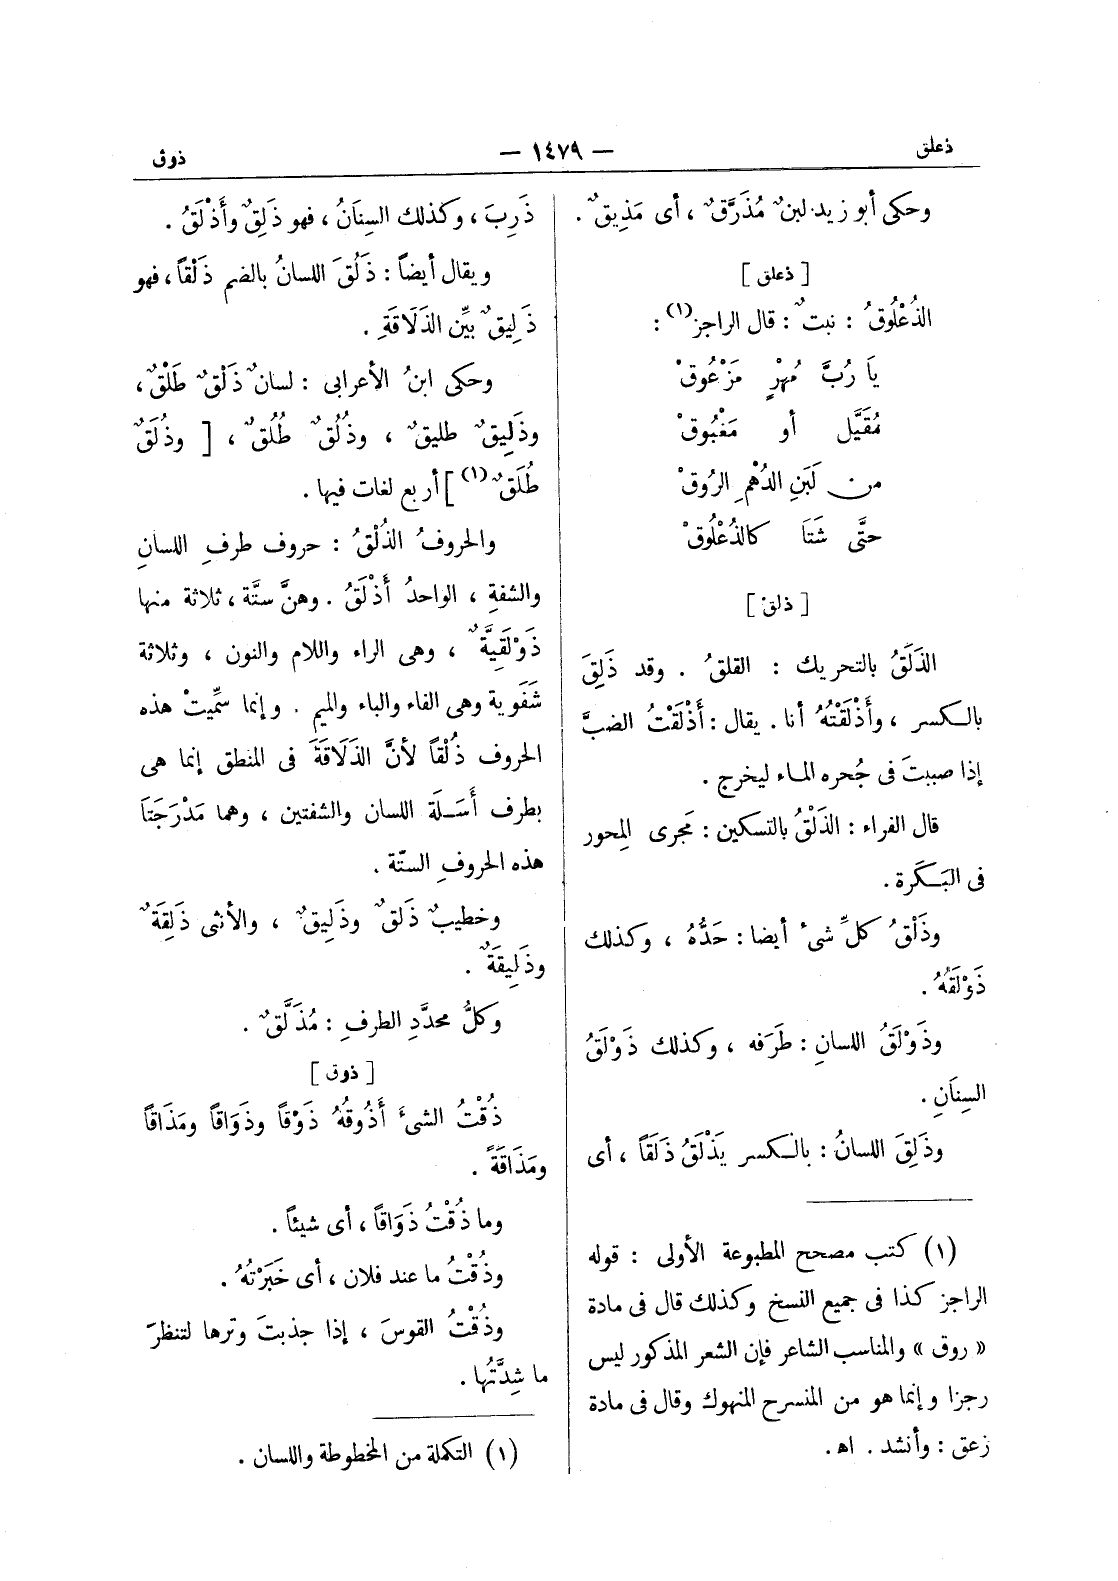 ذعلق — ١٤٧٩ — ذوق
وحكى أبو زيد: لبنٌ مُذَرَّقٌ ، أى مَذِيقٌ .
[ ذعلق ]
الذُعْلُوقُ : نبتٌ : قال الراجز(١) :
يا رُبَّ مُهْرٍ مَزْعُوقْ
مُقَيَّل أو مَغْبُوقْ
من لَبَنِ الدُهْمِ الرُوقْ
حتَّى شَتَا كالذُعْلُوقْ
[ ذلق ]
الذَلَقُ بالتحريك : القلقُ . وقد ذَلِقَ
بالكسر ، وأَذْلَقْتُهُ أنا . يقال : أَذْلَقْتُ الضبَّ
إذا صببتَ فى جُحره الماء ليخرج .
قال الفراء : الذَلْقُ بالتسكين : مَجرى المِحور
فى البَكَرة .
وذَلْقُ كلِّ شىءٍ أيضا : حَدُّهُ ، وكذلك
ذَوْلَقُهُ .
وذَوْلَقُ اللسانِ : طَرَفه ، وكذلك ذَوْلَقُ
السِنَانِ .
وذَلِقَ اللسانُ : بالكسر يَذْلَقُ ذَلَقًا ، أى
(١) كتب مصحح المطبوعة الأولى : قوله
الراجز كذا فى جميع النسخ وكذلك قال فى مادة
« روق » والمناسب الشاعر فإن الشعر المذكور ليس
رجزا وإنما هو من المنسرح المنهوك وقال فى مادة
زعق : وأنشد . اه .
ذَرِبَ ، وكذلك السِنَانُ ، فهو ذَلِقٌ وأَذْلَقُ .
ويقال أيضاً : ذَلُقَ اللسانُ بالضم ذَلْقاً ، فهو
ذَلِيقٌ بيِّن الذَلَاقَةِ .
وحكى ابنُ الأعرابى : لسانٌ ذَلْقٌ طَلْقٌ ،
وذَلِيقٌ طليقٌ ، وذُلُقٌ طُلُقٌ ، [ وذُلَقٌ
طُلَقٌ(١) ] أربع لغات فيها .
والحروفُ الذُلْقُ : حروف طرفِ اللسانِ
والشفةِ ، الواحدُ أَذْلَقُ . وهنَّ ستَّة ، ثلاثة منها
ذَوْلَقِيَّةٌ ، وهى الراء واللام والنون ، وثلاثة
شَفَوية وهى الفاء والباء والميم . وإنما سمِّيتْ هذه
الحروف ذُلْقاً لأنَّ الذَلَاقَةَ فى المنطق إنما هى
بطرف أَسَلَة اللسان والشفتين ، وهما مَدْرَجَتَا
هذه الحروفِ الستّة .
وخطيبٌ ذَلِقٌ وذَلِيقٌ ، والأنثى ذَلِقَةٌ
وذَلِيقَةٌ .
وكلُّ محدَّدِ الطرفِ : مُذَلَّقٌ .
[ ذوق ]
ذُقْتُ الشىءَ أَذُوقُهُ ذَوْقاً وذَوَاقاً ومَذَاقاً
ومَذَاقَةً .
وما ذُقْتُ ذَوَاقاً ، أى شيئاً .
وذُقْتُ ما عند فلان ، أى خَبَرْتُهُ .
وذُقْتُ القوسَ ، إذا جذبتَ وترها لتنظرَ
ما شِدَّتُها .
(١) التكملة من المخطوطة واللسان .